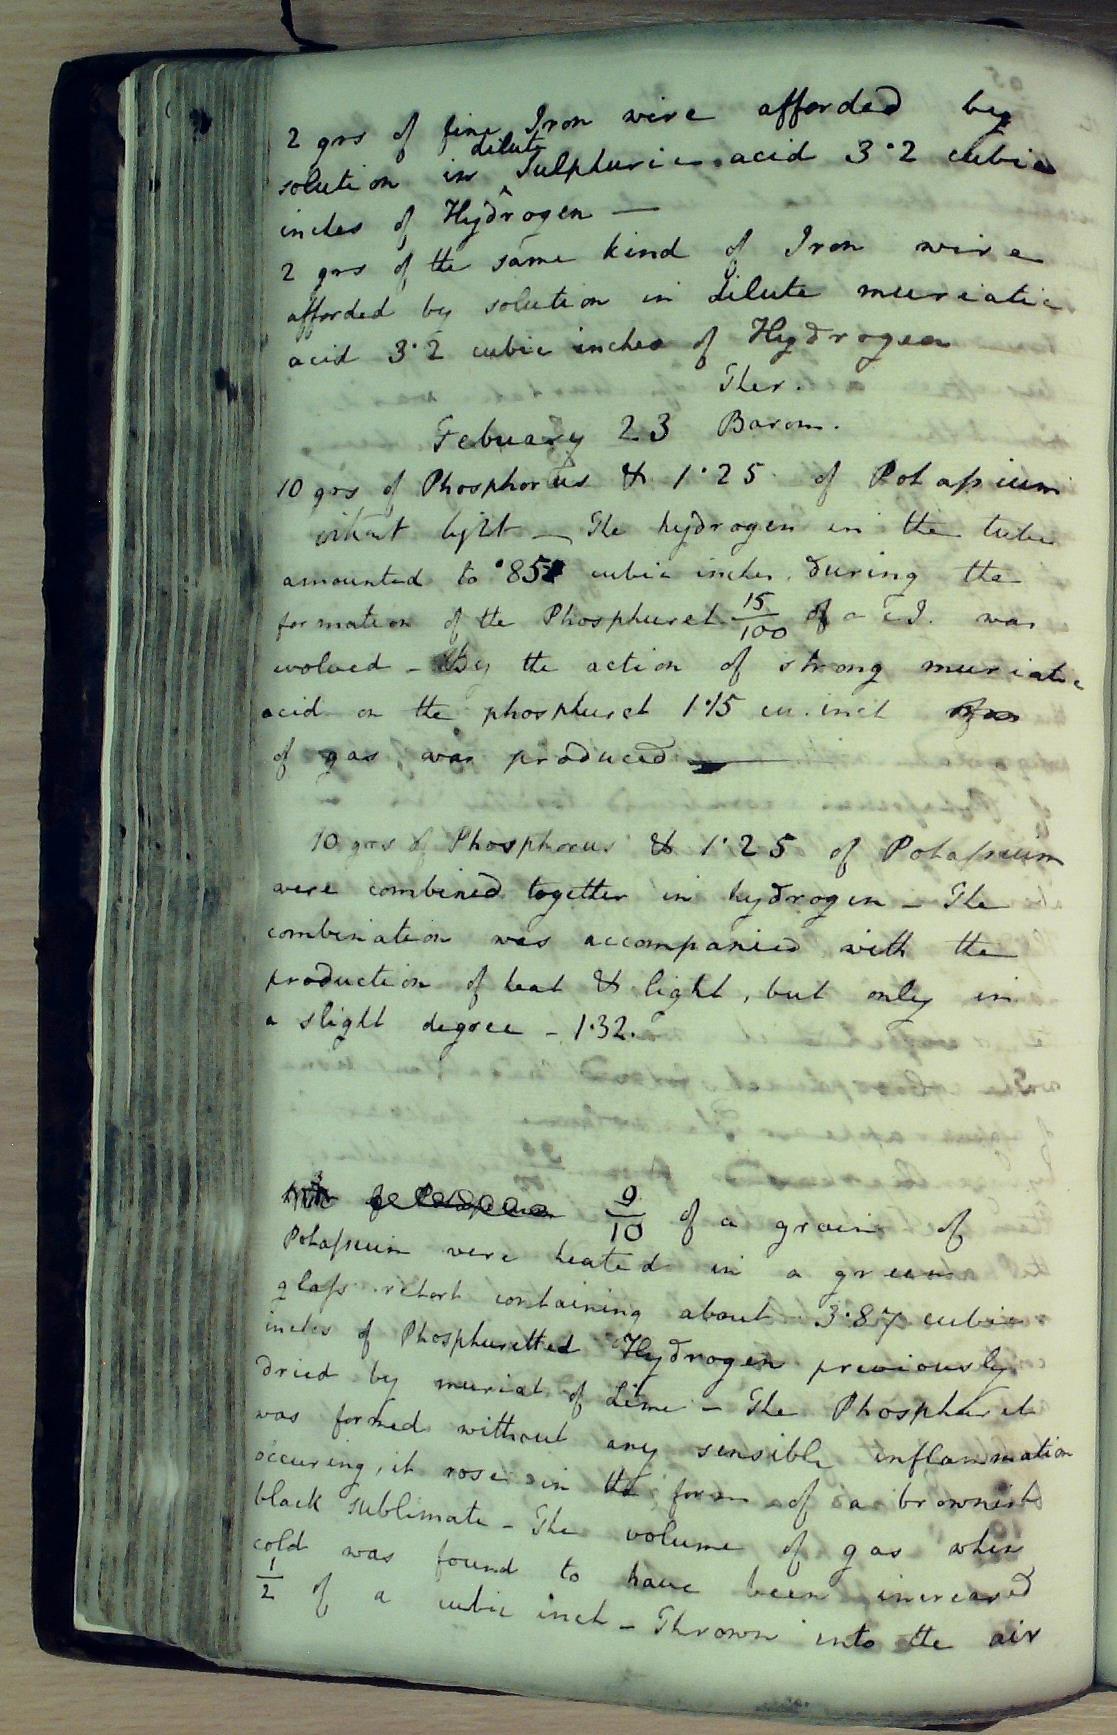 2 grs of fine Iron wire afforded by
solution in dilute Sulphuric acid 3·2 cubic
inches of Hydrogen —
2 grs of the same kind of Iron wire
afforded by solution in dilute muriatic
acid 3·2 cubic inches of Hydrogen
Ther.
Febuary 23 Barom.
10 grs of Phosphorus & 1·25 of Potaſsium
without light — The hydrogen in the tube
amounted to ·85 cubic inches. during the
formation of the Phosphuret 15/100 of a c I. was
evolved — By the action of strong muriatic
acid on the phosphuret 1·15 cu. inch
of gas was produced —
10 grs of Phosphorus & 1·25 of Potaſsium
were combined together in hydrogen — The
combination was accompanied with the
production of heat & light, but only in
a slight degree — 1·32.
9/10 of a grain of
Potaſsium were heated in a green
glaſs retort containing about 3·87 cubic
inches of Phosphuretted Hydrogen previously
dried by muriat of Lime — The Phosphuret
was formed without any sensible inflammation
occuring, it rose in the form of a brownish
black sublimate — The volume of gas when
cold was found to have been increased
1/2 of a cubic inch — Thrown into the air